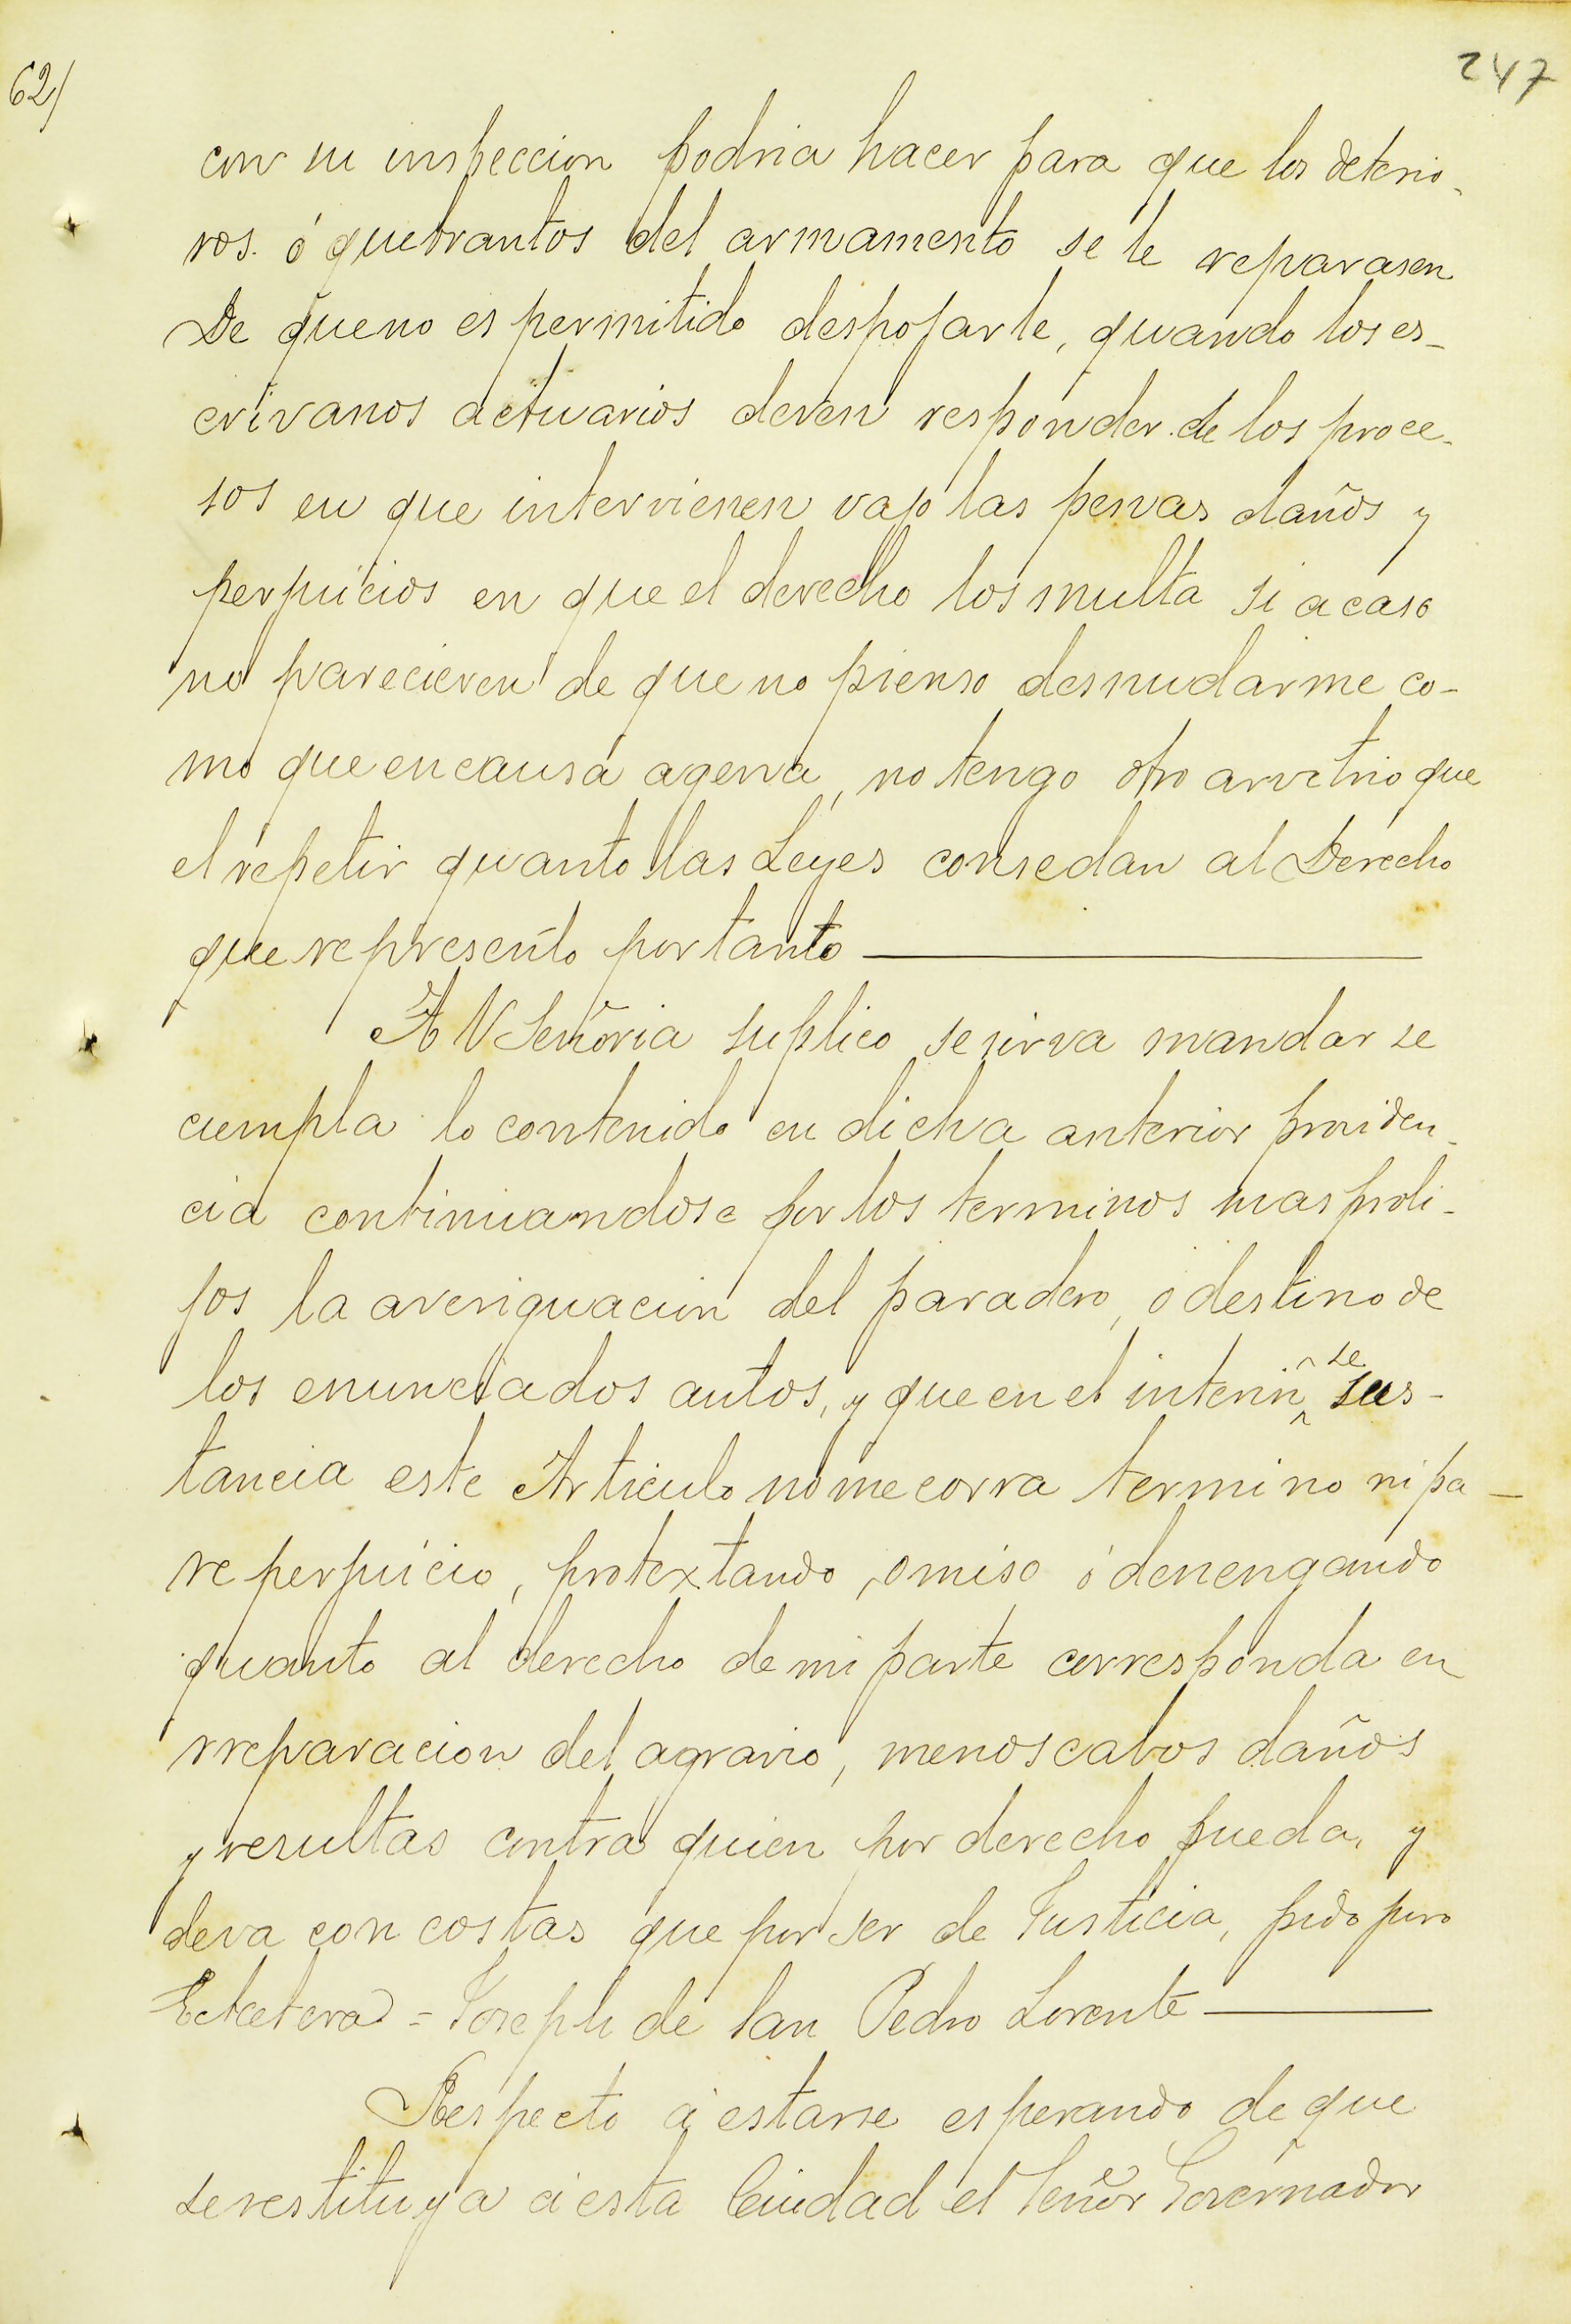 62/
247
con su inspeccion podria hacer para que los deterio-
ros. ó quebrantos del armamento se le reparasen
De que no es permitido despojarle, quando los es-
crivanos actuarios deven responder de los proce-
sos en que intervienen vajo las penas daños y
perjuicios en que el derecho los multa si acaso
no parecieren de que no pienso desnudarme co-
mo que en causa agena, no tengo otro arvitrio que
el repetir quanto las Leyes consedan al Derecho
que represento por tanto
A V Señoria suplico se sirva mandar se
cumpla lo contenido en dicha anterior providen-
cia continuandose por los terminos mas proli-
jos la averiguacion del paradero, o destino de
los enunciados autos, y que en el interin se sus-
tancia este Articulo no me corra termino ni pa-
re perjuicio, protextando, omiso ó denengando
quanto al derecho de mi parte corresponda en
rreparacion del agravio, menoscabos daños
y resultas contra quien por derecho pueda, y
deva con costas que por ser de Justicia, pido juro
Ectcetera = Joseph de San Pedro Lorente
Respecto á estarse esperando de que
se restituya á esta Ciudad el Señor Governador